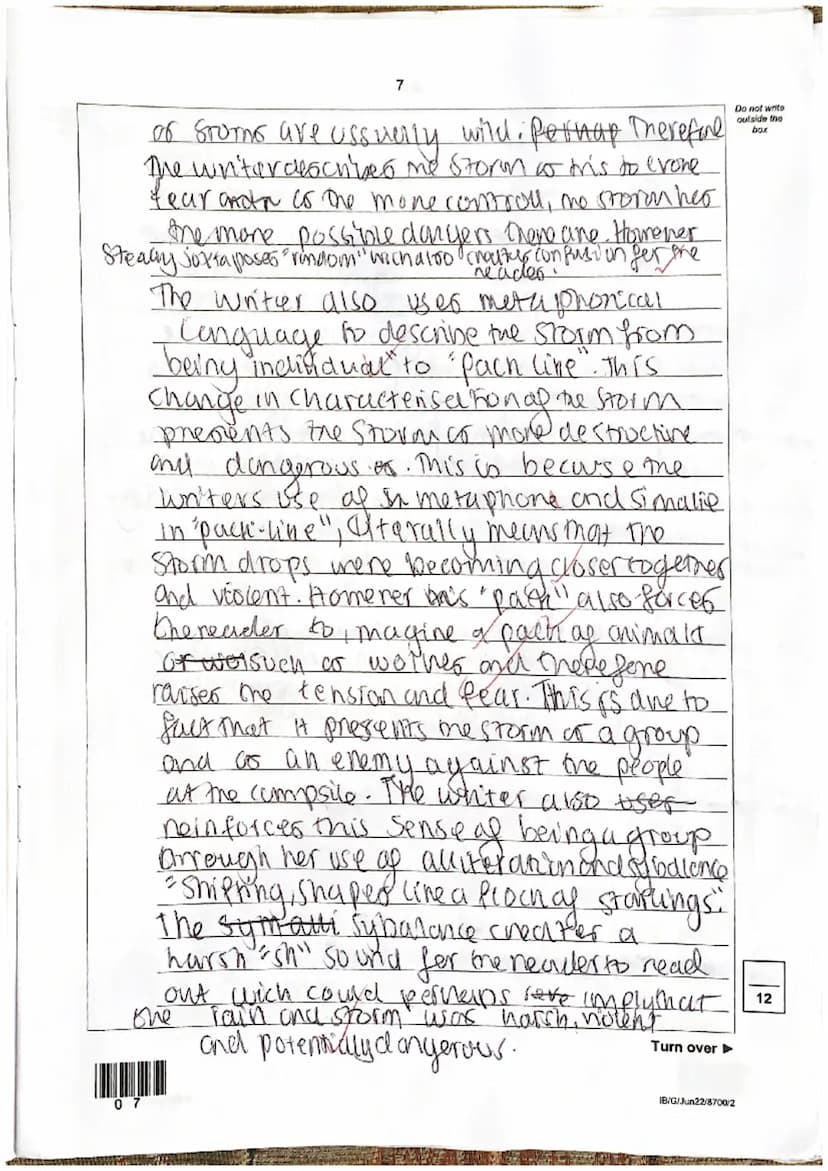 7
Do not write
outside the
box
of storms are ussually wild. Perhap Therefore
the writer describes the storm as this to evoke
fear as the more controll, the storm has
the more possible dangers there are. However
Steady juxtaposes "random" wich also creates confusion for the
reader.
The writer also uses metaphorical
language to describe the storm from
being individual" to "pack line". This
change in characterisation of the storm
presents the storm as more destructive
and dangerous as. This is becuase the
writers use of metaphore and similie
in "pack-line", literally means that the
storm drops were becoming closer together
and violent. However this "pack" also forces
the reader to imagine a pack of animals
or wol such as wolves and therefore
raises the tension and fear. This is due to
fact that it presents the storm as a group
and as an enemy against the people
at the campsite. The writer also uses
reinforces this sense of being a group
through her use of alliteration and sybalence
"Shifting, shapes like a flock of starlings".
The sybalance creates a
harsh "sh" sound for the reader to read
out wich could perhaps imply that
the rain and storm was harsh, violent
and potentially dangerous.
12
Turn over ►
0 7
IB/G/Jun22/8700/2